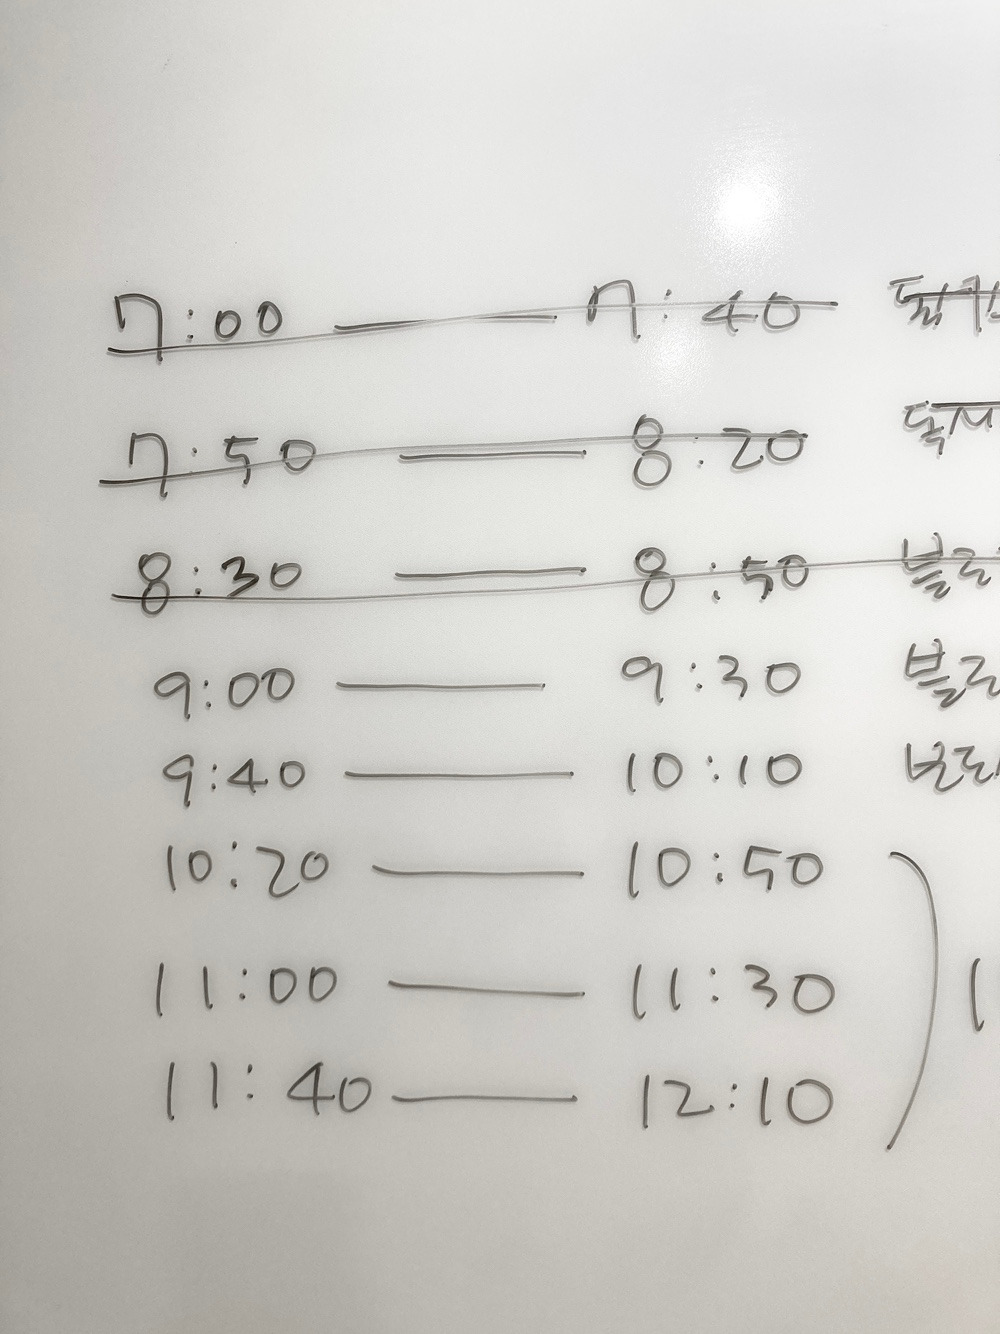 7:00 — 7:40
7:50 — 8:20 독서
8:30 — 8:50 블로
9:00 — 9:30 블로
9:40 — 10:10
10:20 — 10:50
11:00 — 11:30
11:40 — 12:10